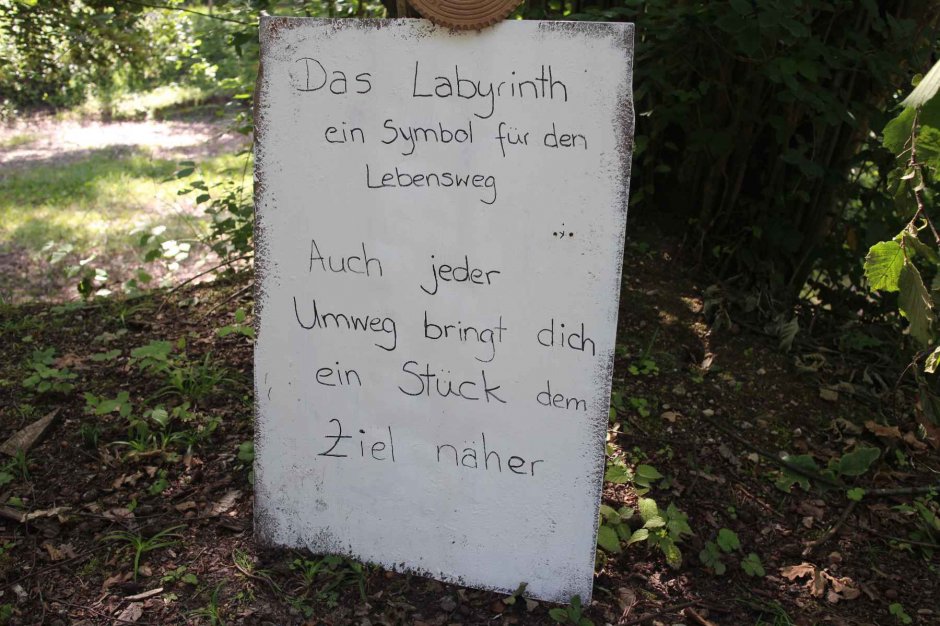 Das Labyrinth
ein Symbol für den
Lebensweg
Auch jeder
Umweg bringt dich
ein Stück dem
Ziel näher